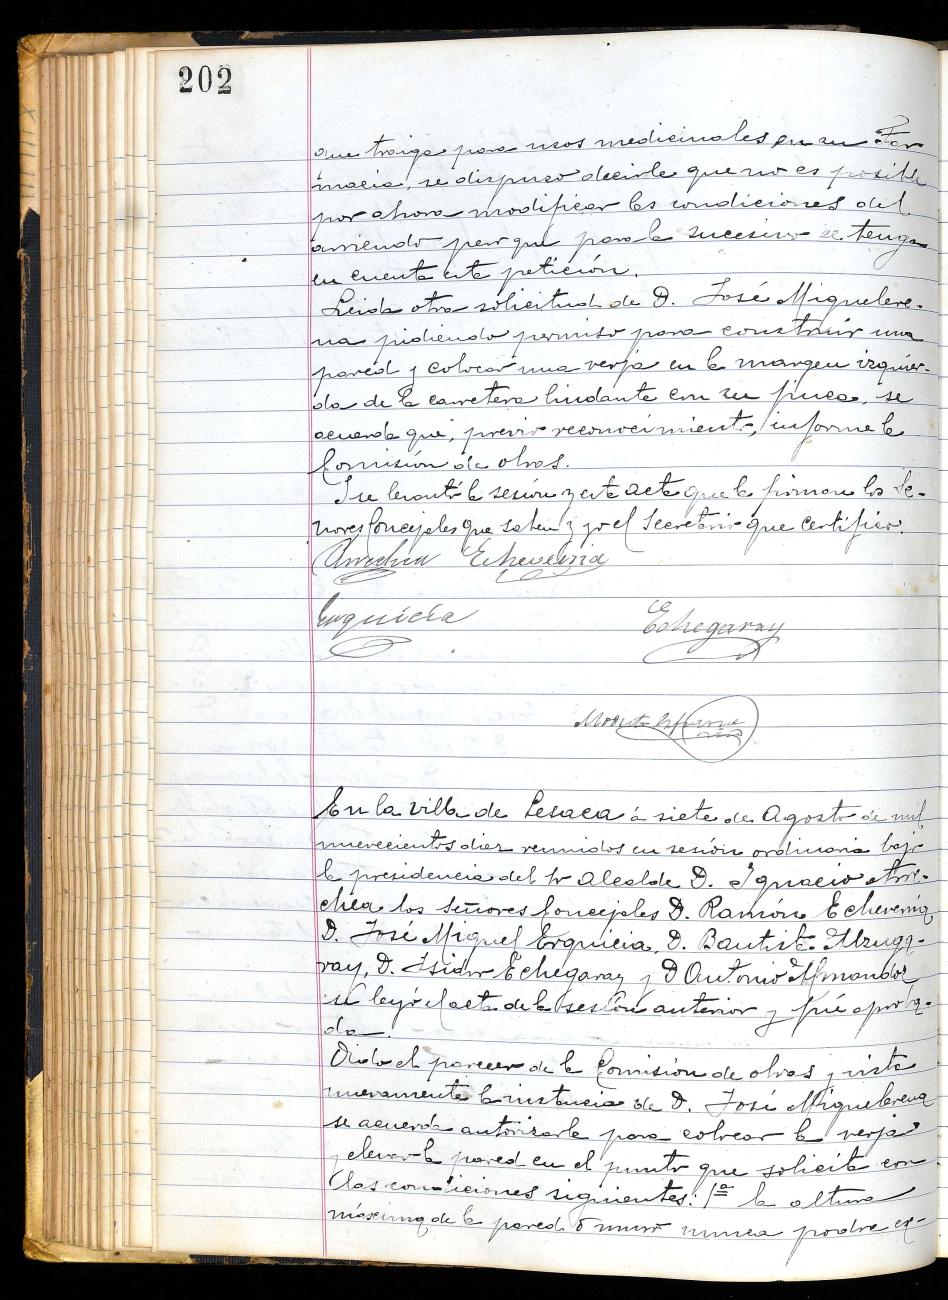 202
que traiga para usos medicinales en su Far
macia, se dispuso decirle que no es posible
por ahora modificar las condiciones del
arriendo pero que para lo sucesivo se tenga
en cuenta esta petición.
Leida otra solicitud de D. José Miguelere-
na pidiendo permiso para construir una
pared y colocar una verja en la margen izquier-
da de la carretera lindante con su finca, se
acuerda que, previo reconocimiento, informe la
Comisión de obras.
I se levantó la sesión y esta acta que la firman los Se-
nores Concejales que saben y yo el Secretario que certifico.
Arrechea Echeverria
Erquicia Echegaray
En la villa de Lesaca á siete de Agosto de mil
nuevecientos diez reunidos en sesión ordinaria bajo
la presidencia del Sr Alcalde D. Ignacio Arre-
chea los Señores Concejales D. Ramón Echeverria
D. José Miguel Erquicia, D. Bautista Alzuga-
ray, D. Isidro Echegaray y D Antonio Almandoz
se leyó el acta de la sesión anterior y fué aproba-
da.
Oido el parecer de la Comisión de obras y vista
nuevamente la instancia de D. José Miguelerena
se acuerda autorizarle para colocar la verja
y elevar la pared en el punto que solicita con
las condiciones siguientes: 1ª la altura
máxima de la pared ó muro nunca podrá ex-